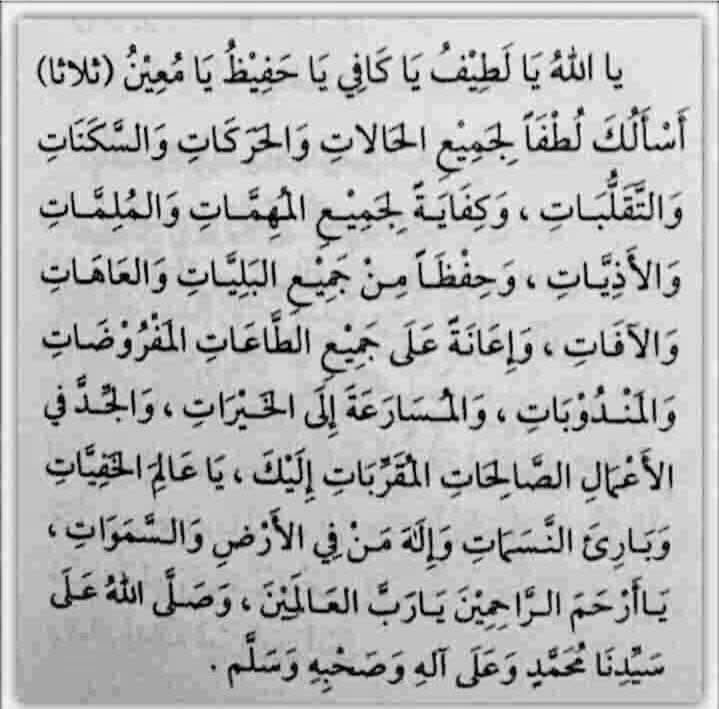 يا اللهُ يَا لَطِيْفُ يَا كَافِي يَا حَفِيْظُ يَا مُعِيْنُ (ثلاثا)
أَسْأَلُكَ لُطْفَاً لِجَمِيْعِ الحَالاتِ وَالحَرَكَاتِ وَالسَّكَنَاتِ
وَالتَّقَلُّبَاتِ ، وَكِفَايَةً لِجَمِيْعِ المُهِمَّاتِ وَالمُلِمَّاتِ
وَالأَذِيَّاتِ ، وَحِفْظَاً مِنْ جَمِيْعِ البَلِيَّاتِ وَالعَاهَاتِ
وَالآفَاتِ ، وَإِعَانَةً عَلَى جَمِيْعِ الطَّاعَاتِ المَفْرُوْضَاتِ
وَالمَنْدُوْبَاتِ ، وَالمُسَارَعَةَ إِلَى الخَيْرَاتِ ، وَالجِدَّ في
الأَعْمَالِ الصَّالِحَاتِ المُقَرِّبَاتِ إِلَيْكَ ، يَا عَالِمَ الخَفِيَّاتِ
وَبَارِئَ النَّسَمَاتِ وَإِلَهَ مَنْ فِي الأَرْضِ وَالسَّمَوَاتِ ،
يَاأَرْحَمَ الرَّاحِمِيْنَ يَارَبَّ العَالَمِيْنَ ، وَصَلَّى اللهُ عَلَى
سَيِّدِنَا مُحَمَّدٍ وَعَلَى آلِهِ وَصَحْبِهِ وَسَلَّم .